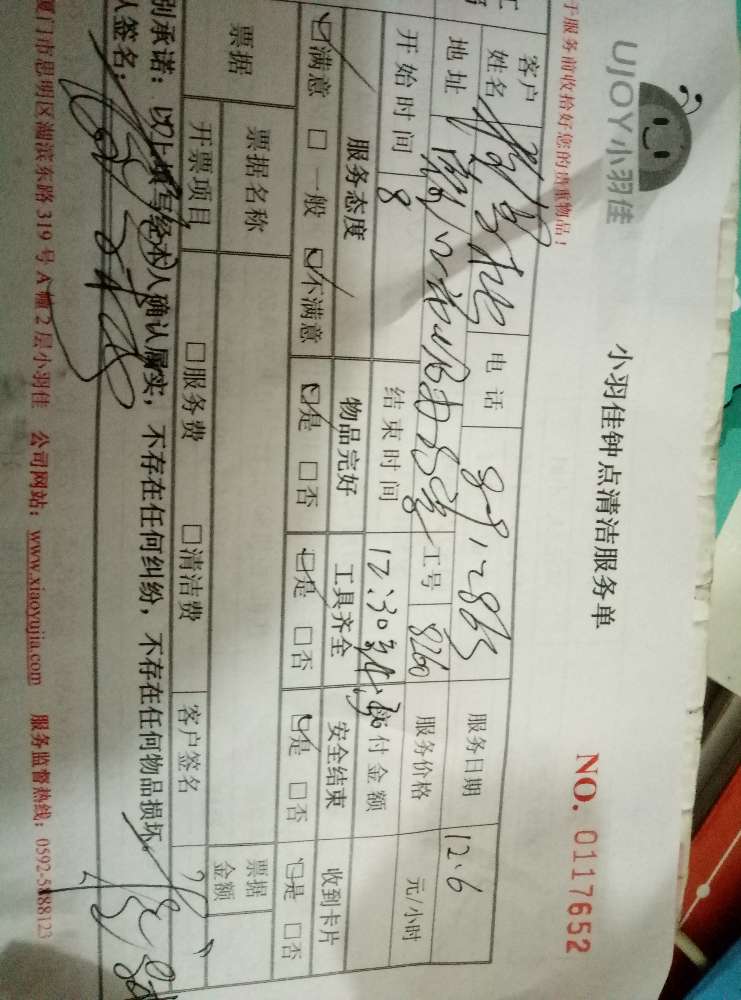 UJOY小羽佳
小羽佳钟点清洁服务单
NO. 0117652
于服务前收拾好您的贵重物品！
客户
姓名
电话
服务日期 12.6
地址
工号 8260
服务价格
元/小时
开始时间 8
结束时间 12:30
付金额
服务态度 物品完好 工具齐全 安全结束 收到卡片
☑满意 □一般 ☑不满意 ☑是 □否 ☑是 □否 ☑是 □否 ☑是 □否
票据
票据名称
票据金额
开票项目 □服务费 □清洁费 客户签名
别承诺：以上填写经本人确认属实，不存在任何纠纷，不存在任何物品损坏。
人签名：
厦门市思明区湖滨东路 319 号 A 幢 2 层小羽佳 公司网站：www.xiaoyujia.com 服务监督热线：0592-5888123